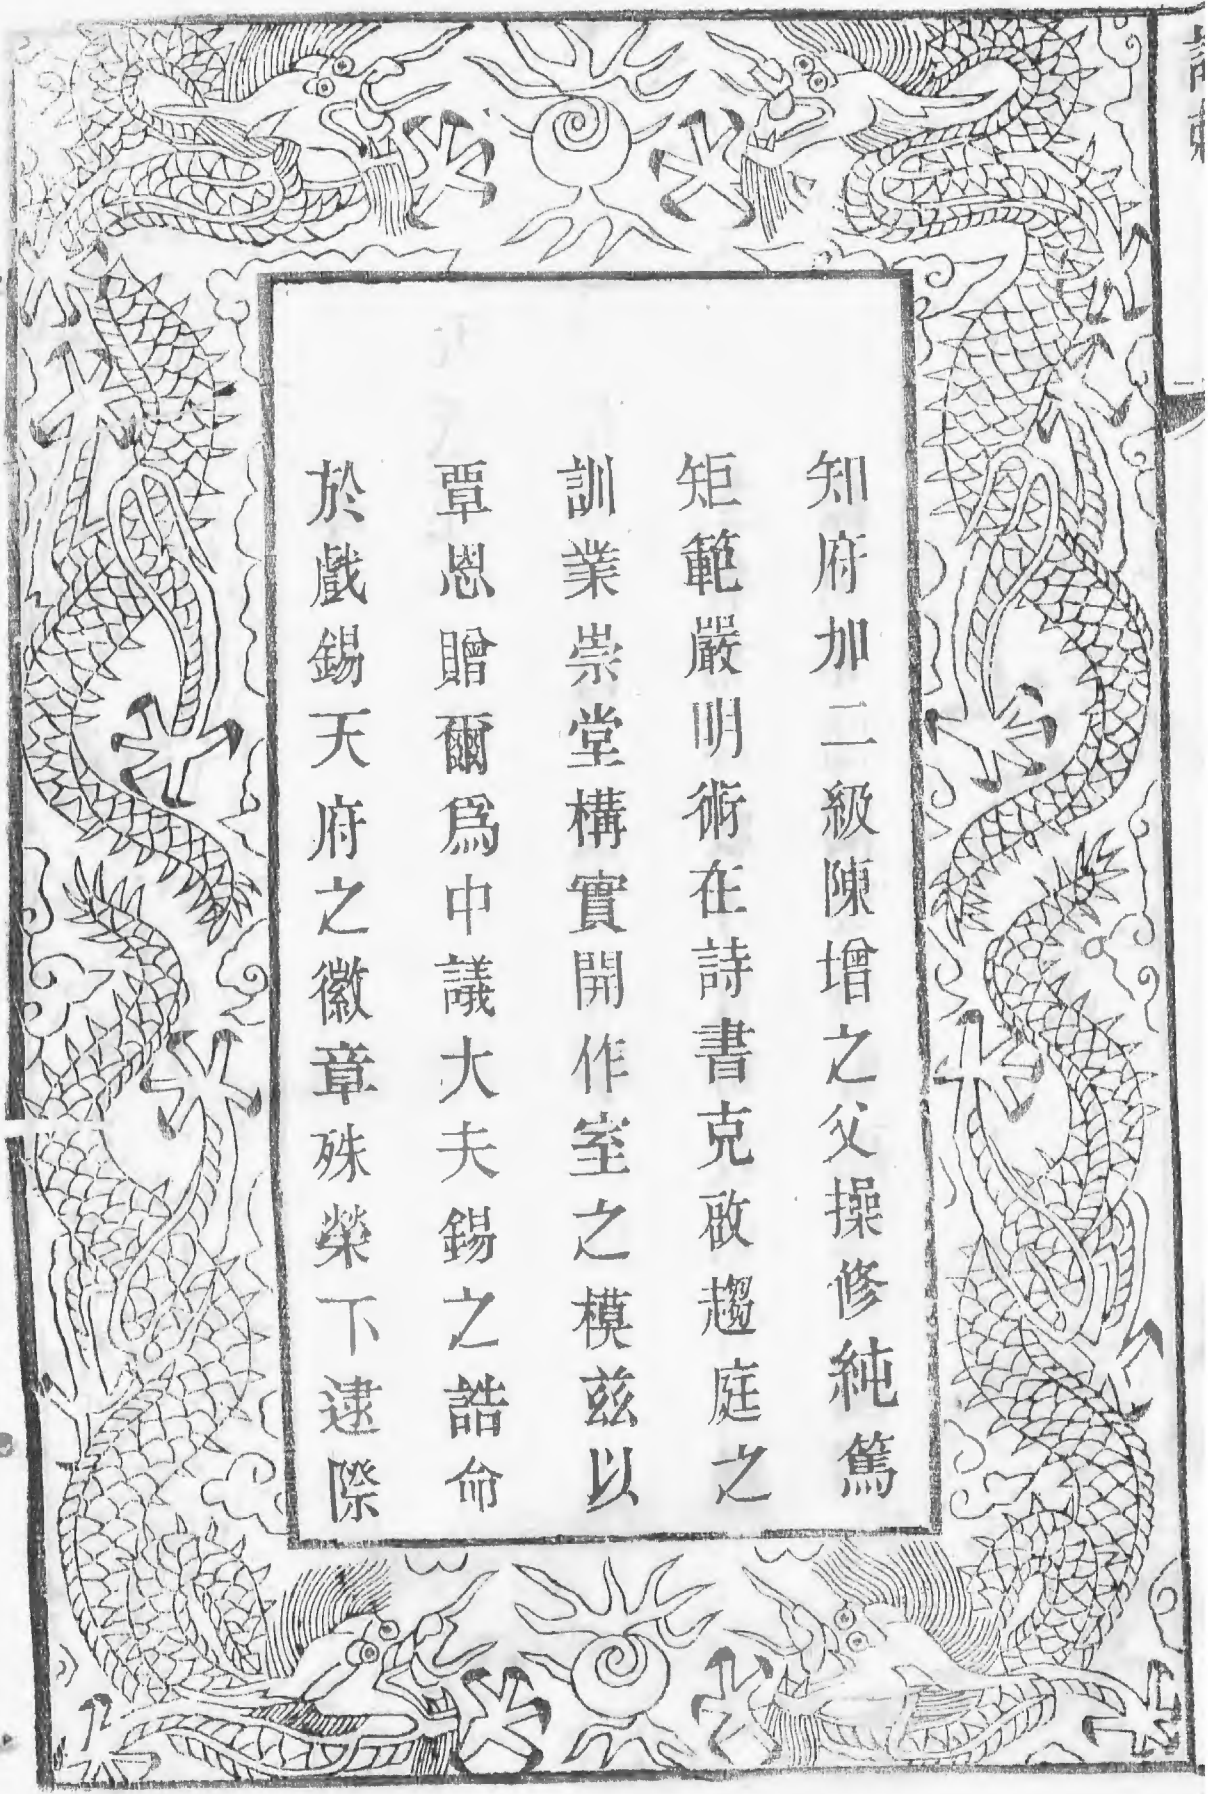 知府加二級陳增之父操修純篤
矩範嚴明術在詩書克啟趨庭之
訓業崇堂構實開作室之模兹以
覃恩贈爾爲中議大夫錫之誥命
於戲錫天府之徽章殊榮下逮際